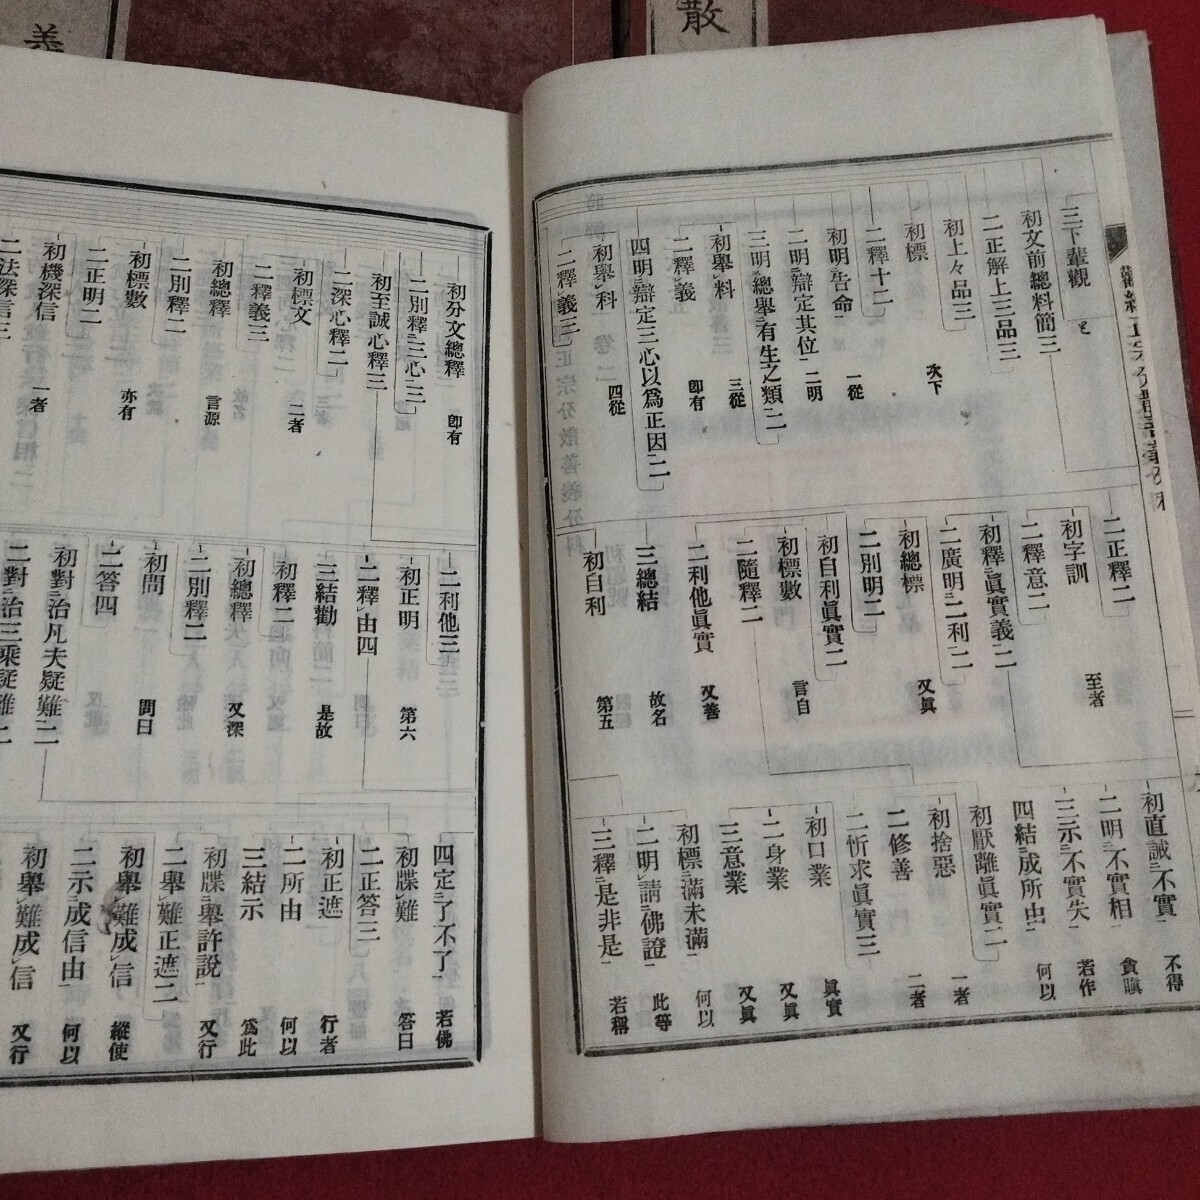 散
三下輩觀
初文前總料簡三
二正解上三品三
初上々品三
初標 次下
二釋十二
初明告命 一從
二明辯定其位 二明
三明總擧有生之類二 三從
初擧料
二釋義 卽有
四明辯定三心以爲正因二 四從
初擧科
二釋義三
二正釋二
初字訓 至者
二釋意二
初釋眞實義二
二廣明二利二
初總標 又眞
二別明二
初自利眞實二
初標數 言自
二隨釋二
二利他眞實 又善
三總結 故名
初自利 第五
初直誡不實 不得
二明不實相 貪瞋
三示不實失 若作
四結成所由 何以
初厭離眞實二
初捨惡 一者
二修善 二者
二忻求眞實三
初口業 眞實
二身業 又眞
三意業 又眞
初標滿未滿 何以
二明請佛證 此等
三釋是非是 若稱
初分文總釋 卽有
二別釋三心三
初至誠心釋三
二深心釋二
初標文 二者
二釋義三
初總釋 言源
二別釋二
初標數 亦有
二正明二
初機深信 一者
二法深信三
二利他三
初正明 第六
二釋由四
三結勸 是故
初釋二
初總釋 又深
二別釋二
初問 問曰
二答四
初對治凡夫疑難二
二對治三乘疑難二
四定了不了 若佛
初牒難 答曰
二正答三
初正遮 行者
二所由 何以
三結示 爲此
初牒擧許說 又行
二擧難正遮二
初擧難成信 縱使
二示成信由 何以
初擧難成信 又行